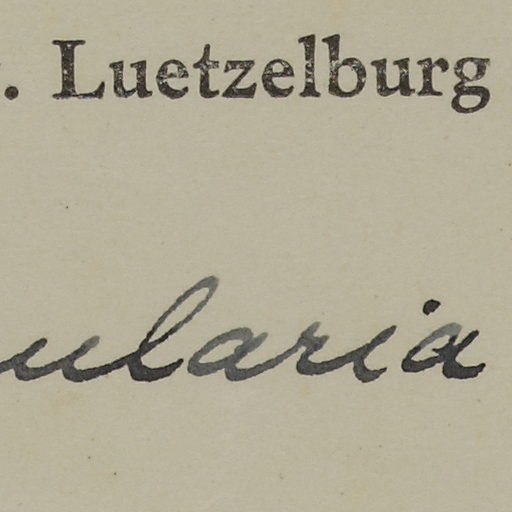 . Luetzelburg
ularia